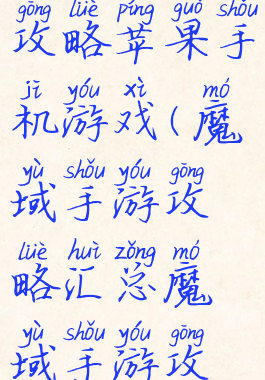 gōng lüè píng guǒ shǒu
攻略苹果手
jī yóu xì mó
机游戏(魔
yù shǒu yóu gōng
域手游攻
lüè huì zǒng mó
略汇总魔
yù shǒu yóu gōng
域手游攻